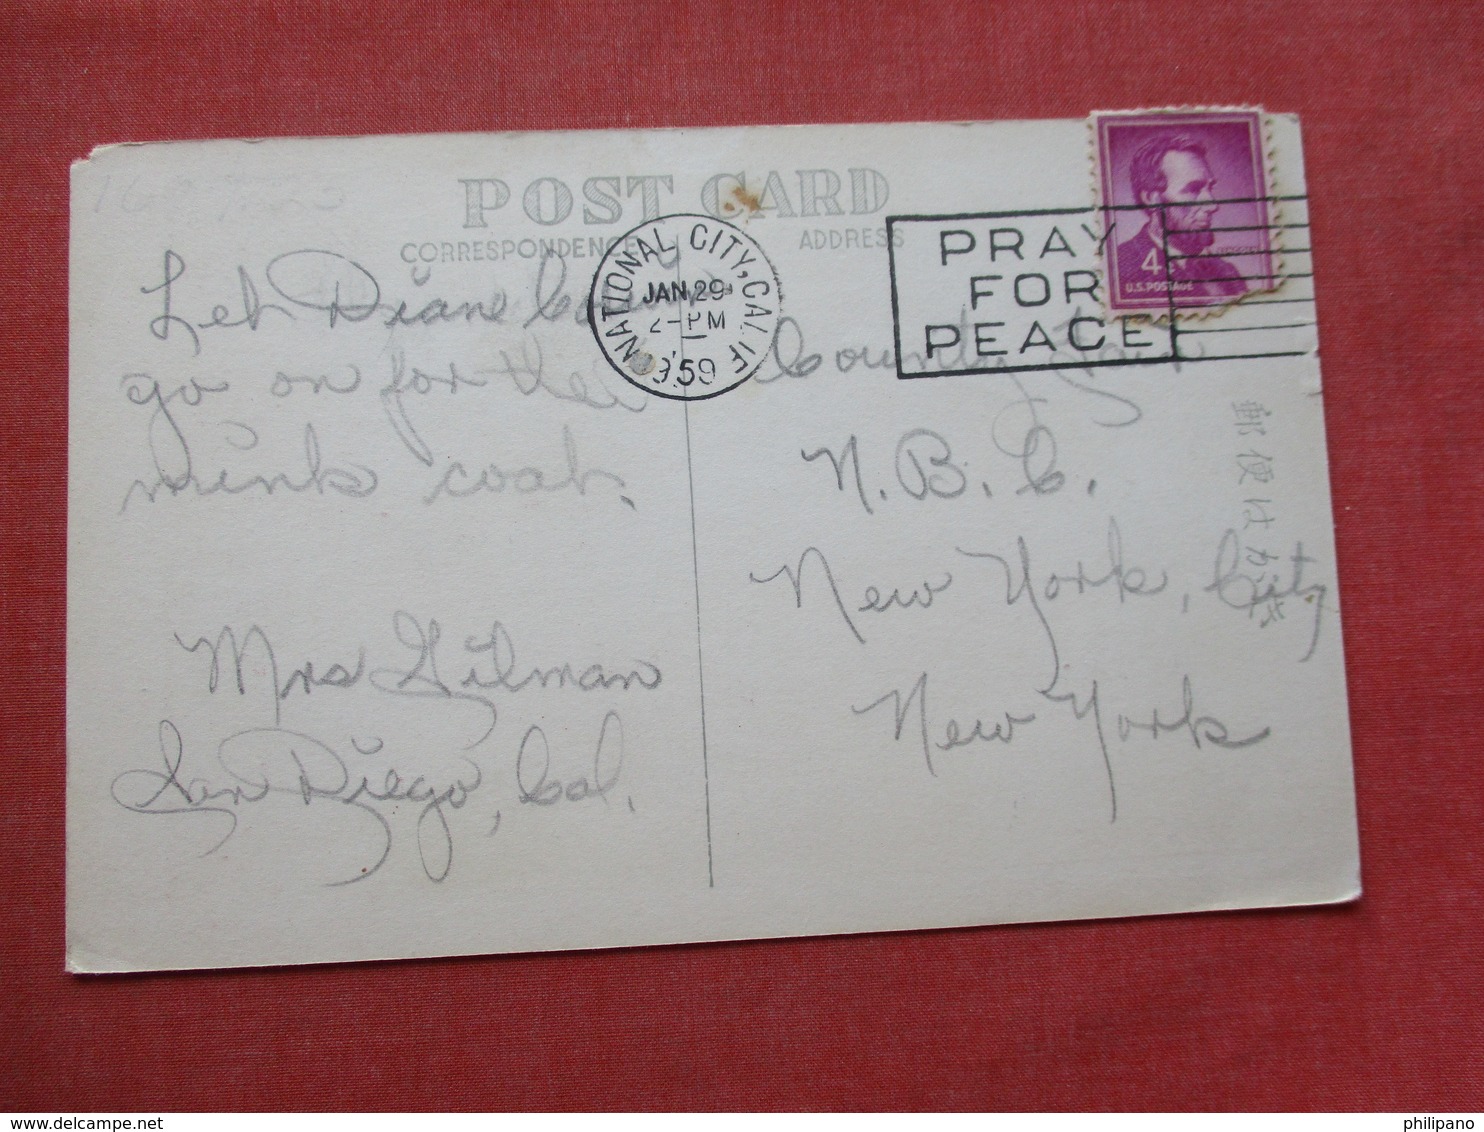 POST CARD
CORRESPONDENCE
ADDRESS
NATIONAL CITY, CALIF
JAN 29
2-PM
1959
PRAY
FOR
PEACE
4¢
U.S. POSTAGE
Let Diane
go on for the
mink coat.
Mrs Gilman
San Diego, Cal.
County Fair
N.B.C.
New York, City
New York
郵便はかき
philipano